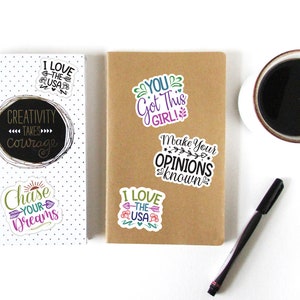 I LOVE
THE
USA
CREATIVITY
TAKES
Courage
Chase
YOUR
Dreams
YOU
Got This
GIRL!
Make Your
OPINIONS
Known
I LOVE
THE
USA